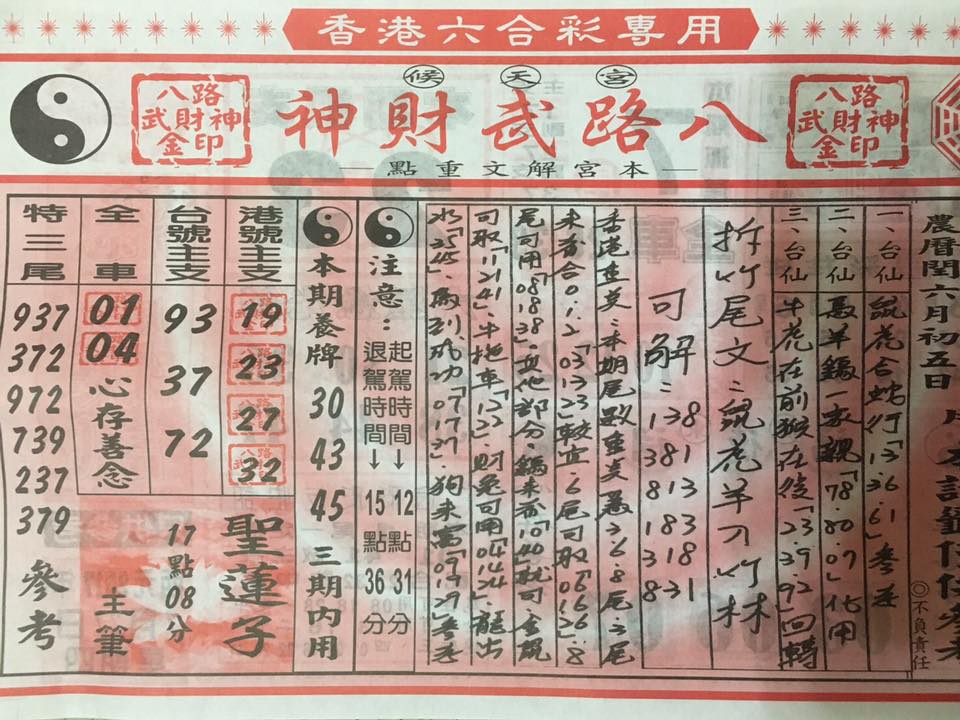 香港六合彩專用
宮天候
八路武財神
本宮解文重點
八路
武財神
金印
八路
武財神
金印
農曆閏六月初五日
◎不負責任
一、台仙 鼠虎合蛇行「13.36.61」參差
二、台仙 馬羊鷄一家親「78.80.07」化用
三、台仙 牛虎在前猴在後「23.39.92」回轉
拆竹尾文：鼠虎羊刀竹林
可解：138
381
813
183
318
831
香港重炎：本期尾數重炎萬3.6.8尾之尾
「03.13.23」較宜.6尾可取「06.16.26」.8
尾可用「08.18.38」其他部分鷄來香「10.40」就可.金鼠
可取「11.21.41」牛拖車「12.22」財兔可用「04.14.24」龍出
水「25.45」馬到成功「07.17.37」狗來富「09.19.29」參考
注意：
起駕時間↓12點31分
退駕時間↓15點36分
本期養牌 30 43 45 三期內用
港號主支
19
23
27
32
聖蓮子
台號主支
93
37
72
17點08分
全車
01
04
心存善念
主筆
特三尾
937
372
972
739
237
379
參考